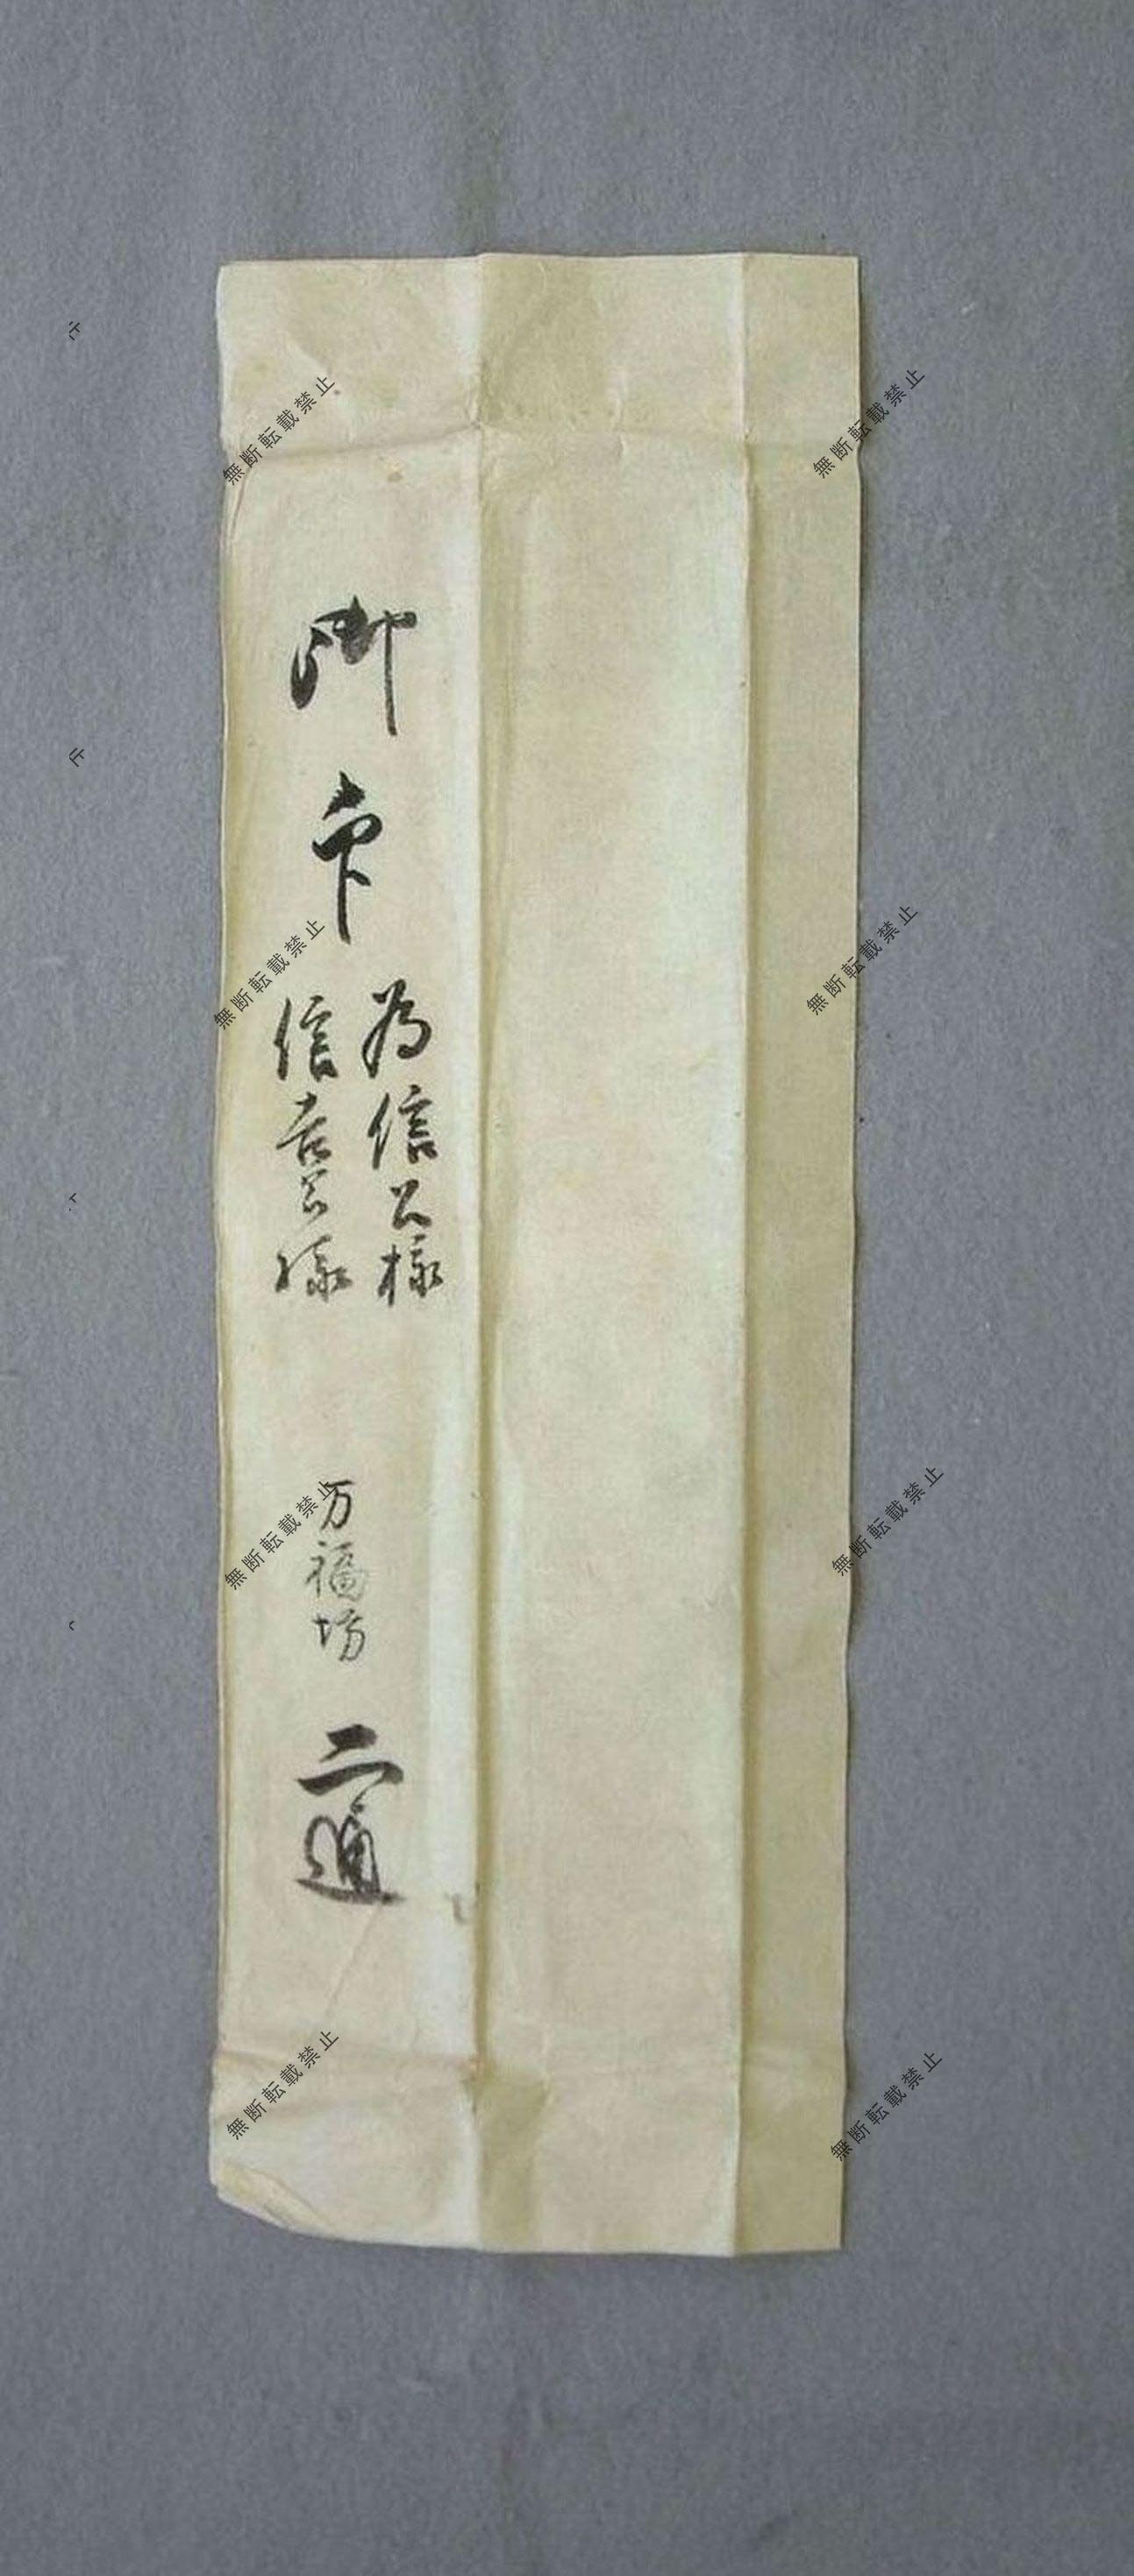 御
為信公様
信吉公様
万福坊
二通
無断転載禁止
無断転載禁止
無断転載禁止
無断転載禁止
無断転載禁止
無断転載禁止
無断転載禁止
無断転載禁止